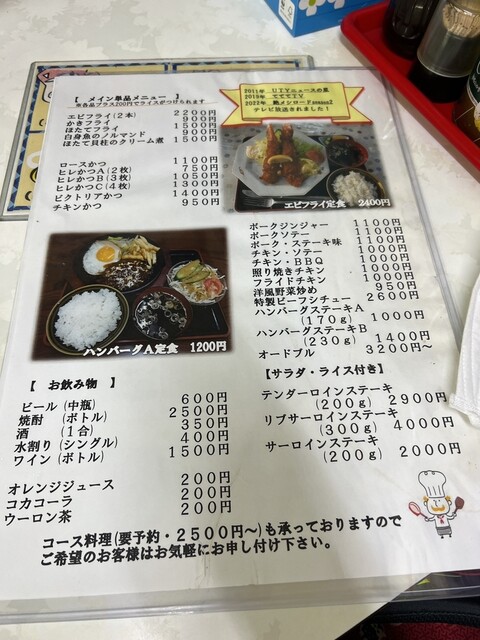 【 メイン単品メニュー 】
※各品プラス200円でライスがつけられます
エビフライ(２本) 2200円
かきフライ 900円
ほたてフライ 1500円
白身魚のノルマンド 900円
ほたて貝柱のクリーム煮 1500円
ロースかつ 1100円
ヒレかつA(２枚) 750円
ヒレかつB(３枚) 1050円
ヒレかつC(４枚) 1300円
ビクトリアかつ 1400円
チキンかつ 950円
2011年 UTYニュースの星
2019年 てててTV
2022年 絶メシロードseason2
テレビ放送されました！
エビフライ定食 2400円
ハンバーグA定食 1200円
ポークジンジャー 1100円
ポークソテー 1100円
ポーク・ステーキ味 1100円
チキン・ソテー 1000円
チキン・BBQ 1000円
照り焼きチキン 1000円
フライドチキン 1000円
洋風野菜炒め 950円
特製ビーフシチュー 2600円
ハンバーグステーキA
(170g) 1000円
ハンバーグステーキB
(230g) 1400円
オードブル 3200円～
【サラダ・ライス付き】
テンダーロインステーキ
(200g) 2900円
リブサーロインステーキ
(300g) 4000円
サーロインステーキ
(200g) 2000円
【 お飲み物 】
ビール(中瓶) 600円
焼酎 (ボトル) 2500円
酒 (１合) 350円
水割り(シングル) 400円
ワイン(ボトル) 1500円
オレンジジュース 200円
コカコーラ 200円
ウーロン茶 200円
コース料理(要予約・２５００円～)も承っておりますので
ご希望のお客様はお気軽にお申し付け下さい。